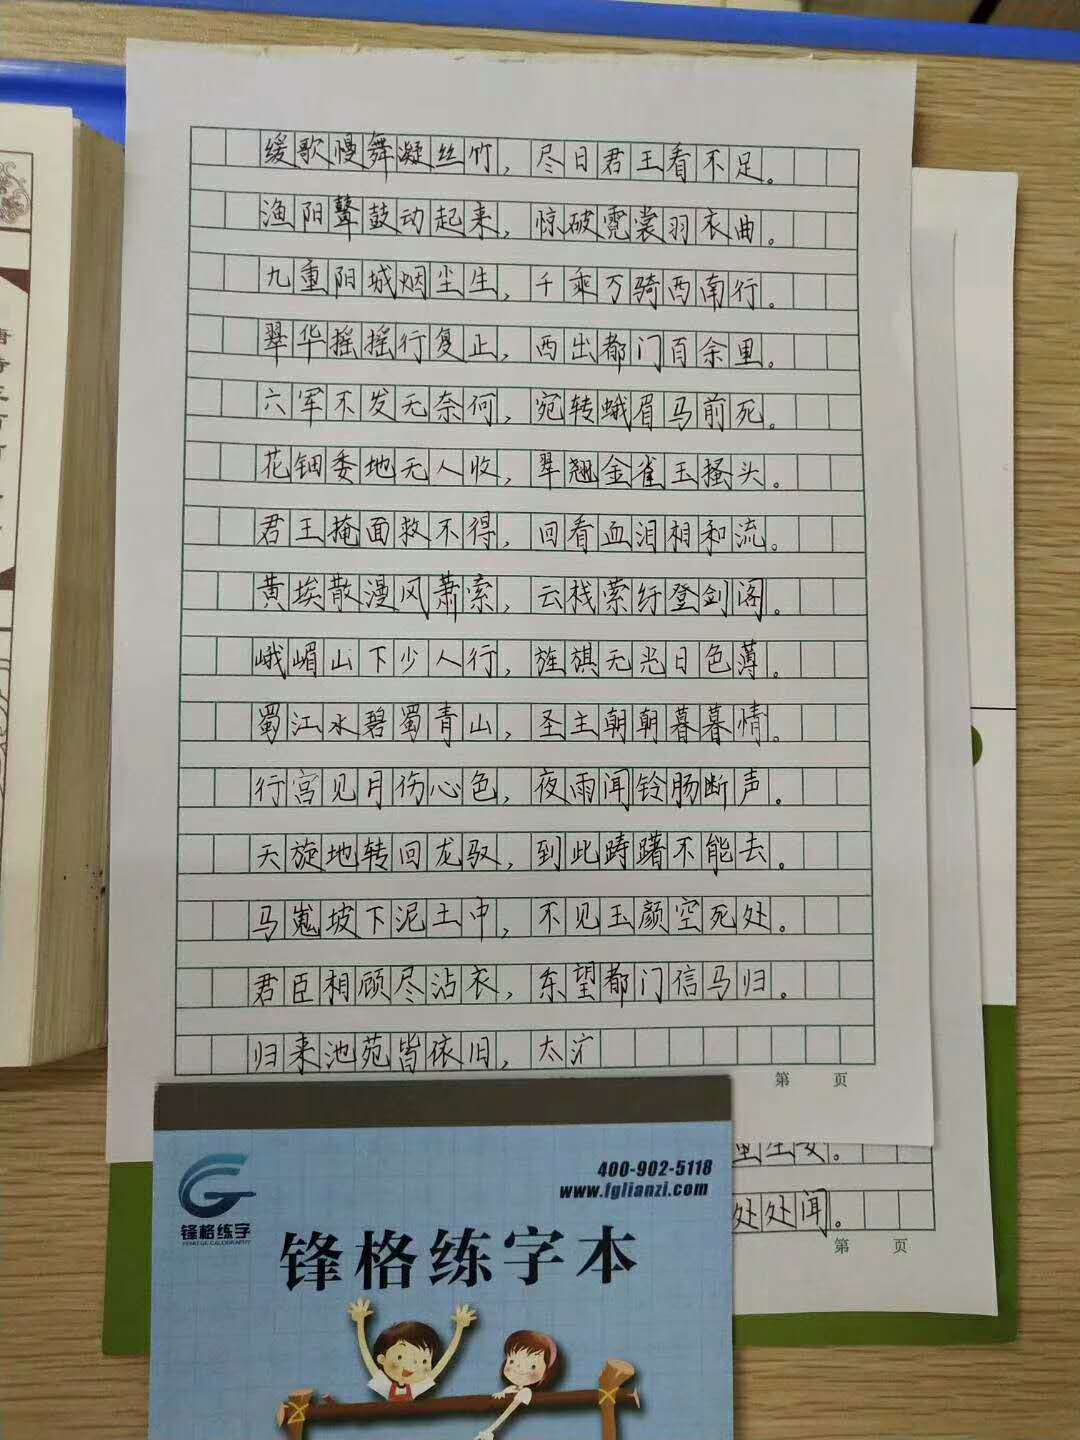 缓歌慢舞凝丝竹，尽日君王看不足。
渔阳鼙鼓动起来，惊破霓裳羽衣曲。
九重阳城烟尘生，千乘万骑西南行。
翠华摇摇行复止，西出都门百余里。
六军不发无奈何，宛转蛾眉马前死。
花钿委地无人收，翠翘金雀玉搔头。
君王掩面救不得，回看血泪相和流。
黄埃散漫风萧索，云栈萦纡登剑阁。
峨嵋山下少人行，旌旗无光日色薄。
蜀江水碧蜀青山，圣主朝朝暮暮情。
行宫见月伤心色，夜雨闻铃肠断声。
天旋地转回龙驭，到此踌躇不能去。
马嵬坡下泥土中，不见玉颜空死处。
君臣相顾尽沾衣，东望都门信马归。
归来池苑皆依旧，太
第 页
处处闻。
第 页
锋格练字
400-902-5118
www.fglianzi.com
锋格练字本